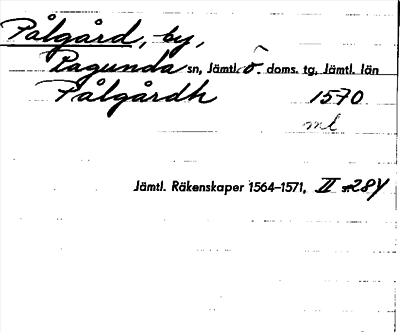 Pålgård, by,
Ragunda sn, Jämtl. ö. doms. tg, Jämtl. län
Pålgårdh 1570
ml
Jämtl. Räkenskaper 1564-1571, II